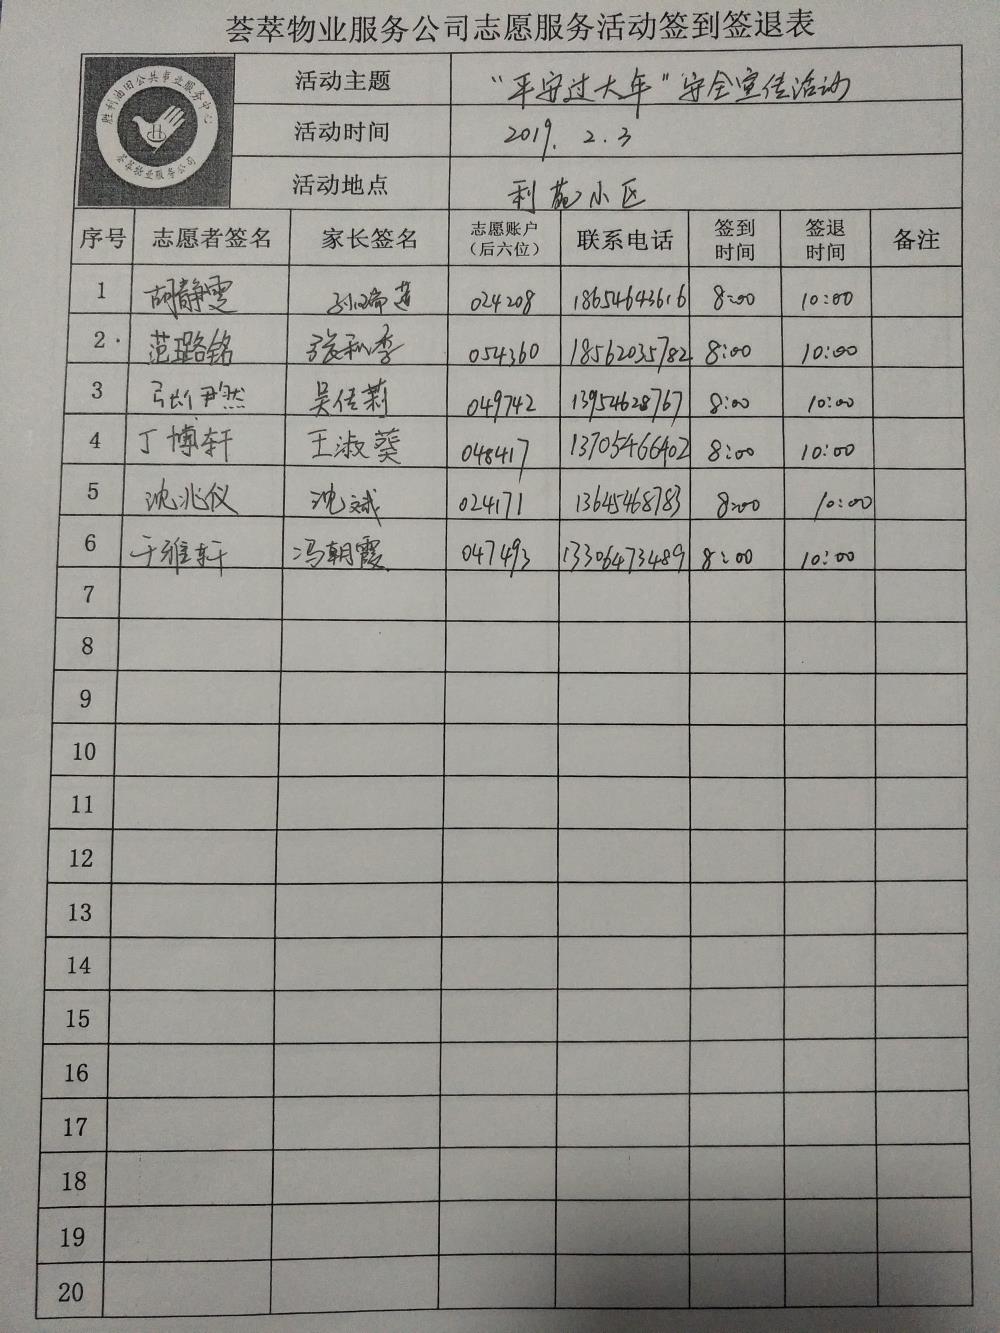 荟萃物业服务公司志愿服务活动签到签退表
胜利油田公共事业服务中心
荟萃物业服务公司
活动主题 “平安过大年”安全宣传活动
活动时间 2019. 2. 3
活动地点 利苑小区
序号 志愿者签名 家长签名 志愿账户（后六位） 联系电话 签到时间 签退时间 备注
1 胡静雯 孙瑞莲 024208 18654643616 8:00 10:00
2 范璐铭 张秋季 054360 18562035782 8:00 10:00
3 张尹然 吴佳莉 049742 13954628767 8:00 10:00
4 丁博轩 王淑葵 048417 13705466402 8:00 10:00
5 沈兆仪 沈斌 024171 13645468783 8:00 10:00
6 于雅轩 冯朝霞 047493 13306473489 8:00 10:00
7
8
9
10
11
12
13
14
15
16
17
18
19
20